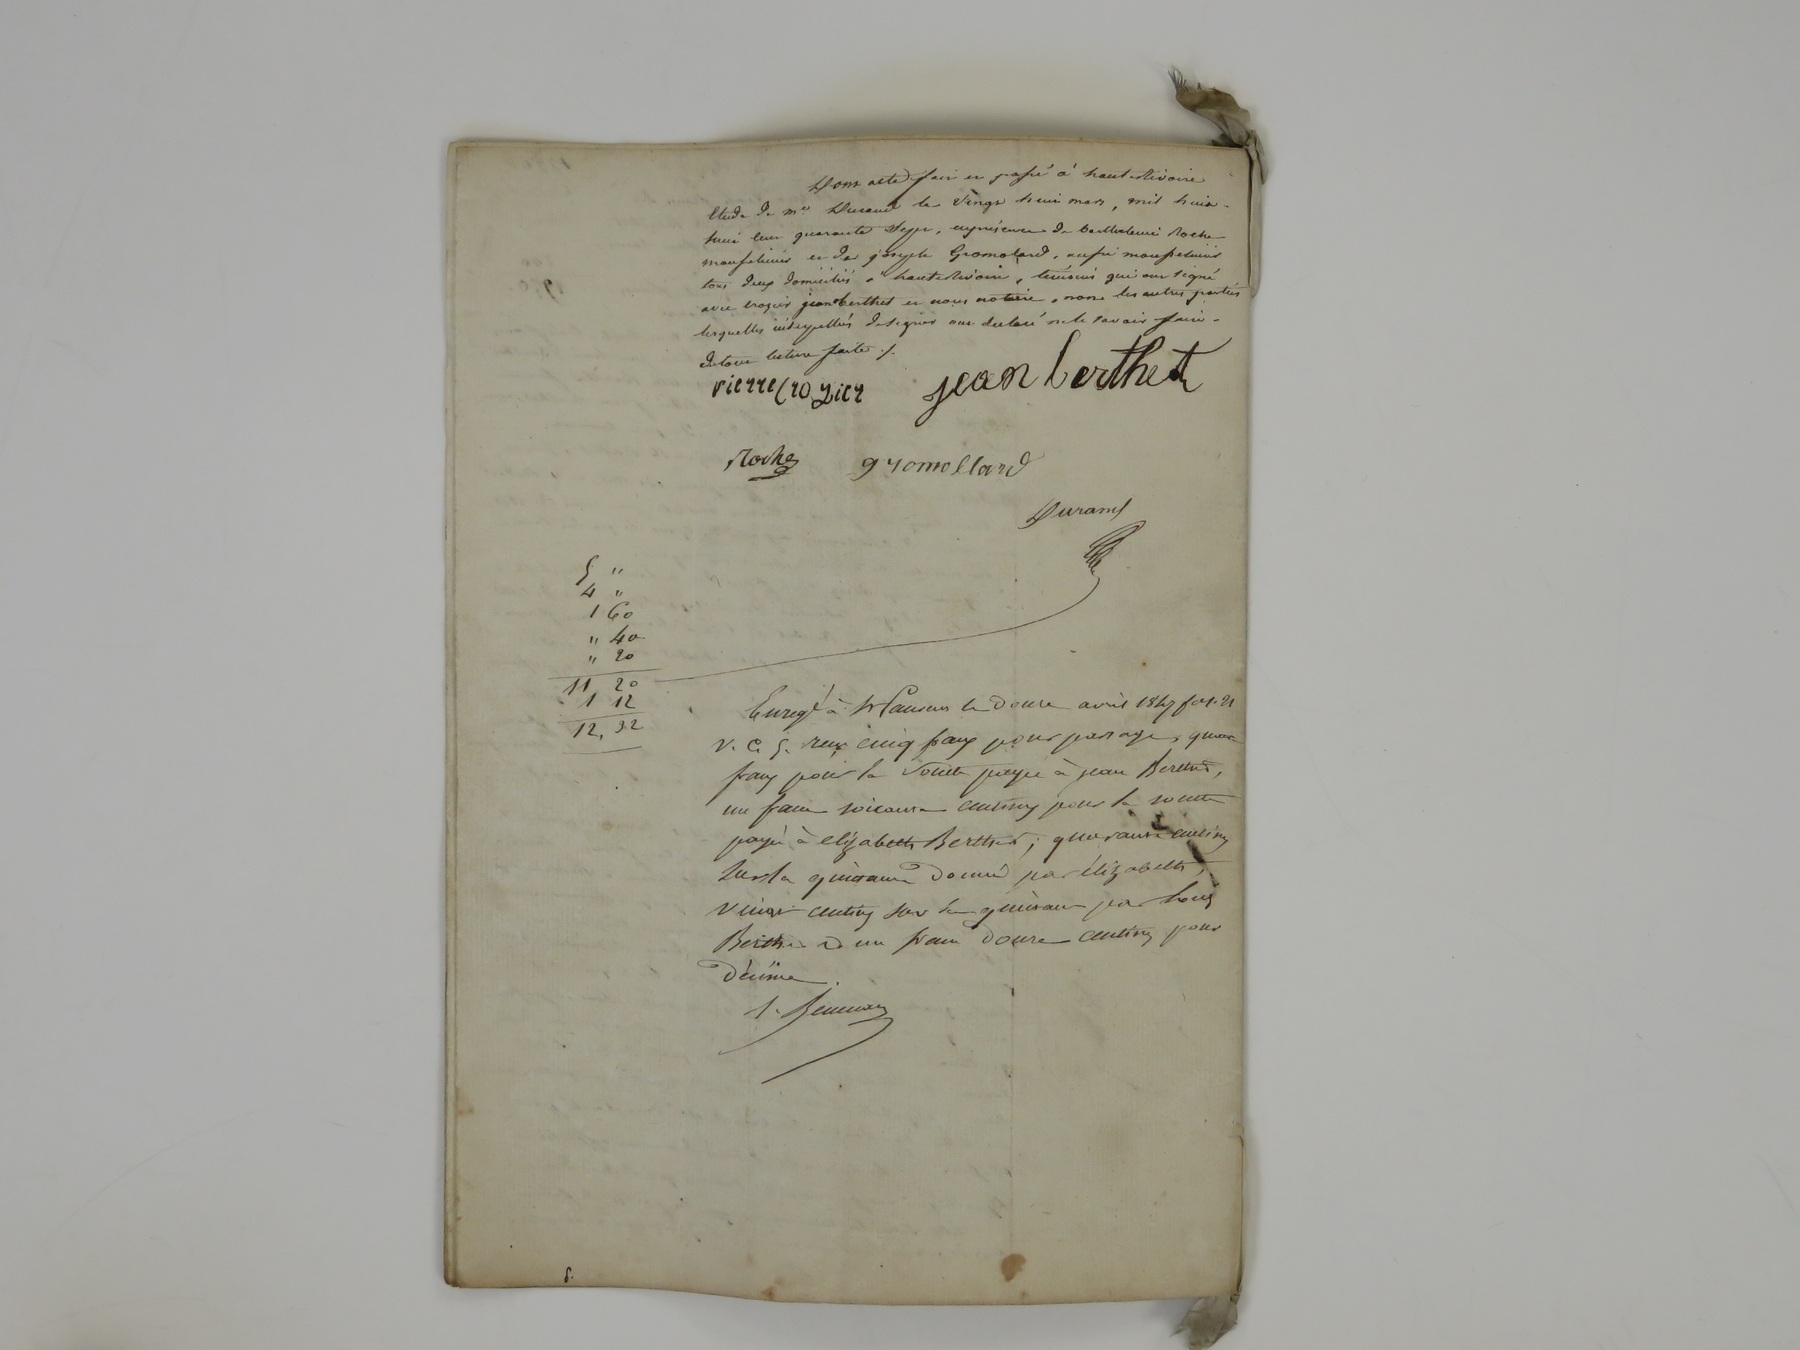 Dont acte fait et passé à hauterivoire
Etude de me Durand le vingt huit mars, mil huit-
cent quarante sept, en présence de barthelemi Roche
et de joseph Gromolard, aussi
tous deux domiciliés à hauterivoire, témoins qui ont signé
avec crozier jean berthet et nous notaire, non les autres parties
lesquelles interpellés de signer ont declaré ne le savoir faire
de tout lecture faite ./.
pierre crozier jean berthet
Roche gromollard
Durand
5 "
4 "
1 60
" 40
" 20
11 20
1 12
12, 32
Enregé à St Laurent le douze avril 1847 fol. 21
v. c. 5. reçu cinq francs pour partage, quatre
francs pour la soulte payée à jean Berthet,
un franc soixante centimes pour la soulte
payée à elizabeth Berthet, quarante centimes
sur la quittance donnée par élizabeth,
vingt centimes sur la quittance par
Berthet et un franc douze centimes pour
décime.
6.